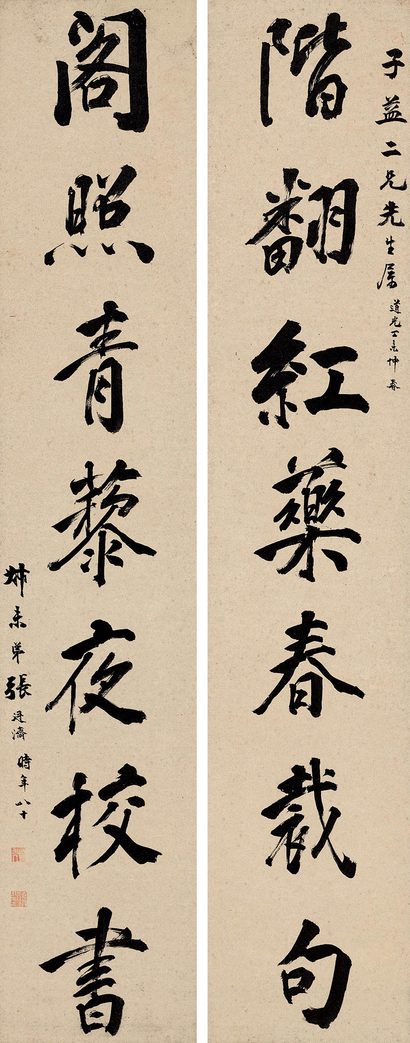 子益二兄先生属
道光丁未仲春
階翻紅藥春裁句
閣照青藜夜校書
姉末弟張廷濟時年八十